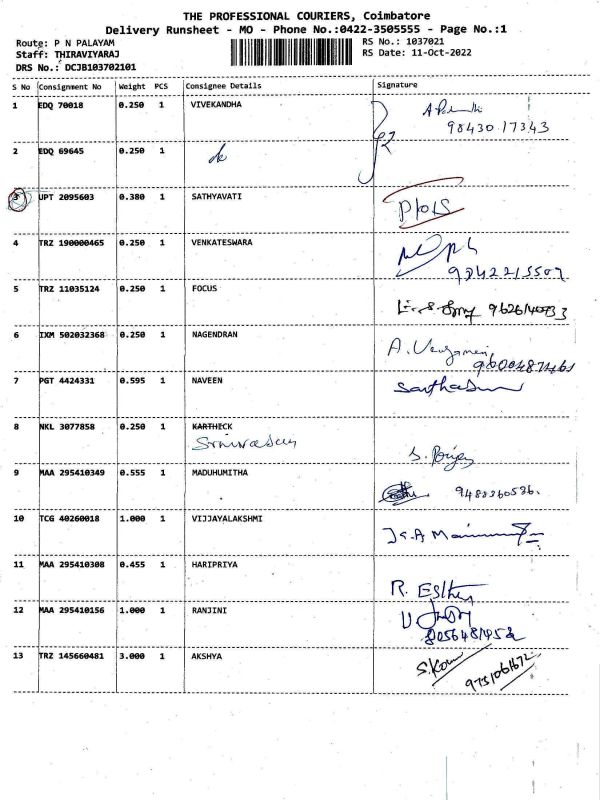 THE PROFESSIONAL COURIERS, Coimbatore
Delivery Runsheet - MO - Phone No.:0422-3505555 - Page No.:1
Route: P N PALAYAM
RS No.: 1037021
Staff: THIRAVIYARAJ
RS Date: 11-Oct-2022
DRS No.: DCJB103702101
S No Consignment No Weight PCS Consignee Details Signature
1 EDQ 70018 0.250 1 VIVEKANDHA
98430 17343
2 EDQ 69645 0.250 1
3 UPT 2095603 0.380 1 SATHYAVATI
4 TRZ 190000465 0.250 1 VENKATESWARA
9842213507
5 TRZ 11035124 0.250 1 FOCUS
6 IXM 502032368 0.250 1 NAGENDRAN
A.
7 PGT 4424331 0.595 1 NAVEEN
8 NKL 3077858 0.250 1 KARTHECK
S.
9 MAA 295410349 0.555 1 MADUHUMITHA
9488360536.
10 TCG 40260018 1.000 1 VIJJAYALAKSHMI
11 MAA 295410308 0.455 1 HARIPRIYA
R. Esther
12 MAA 295410156 1.000 1 RANJINI
13 TRZ 145660481 3.000 1 AKSHYA
9751061672